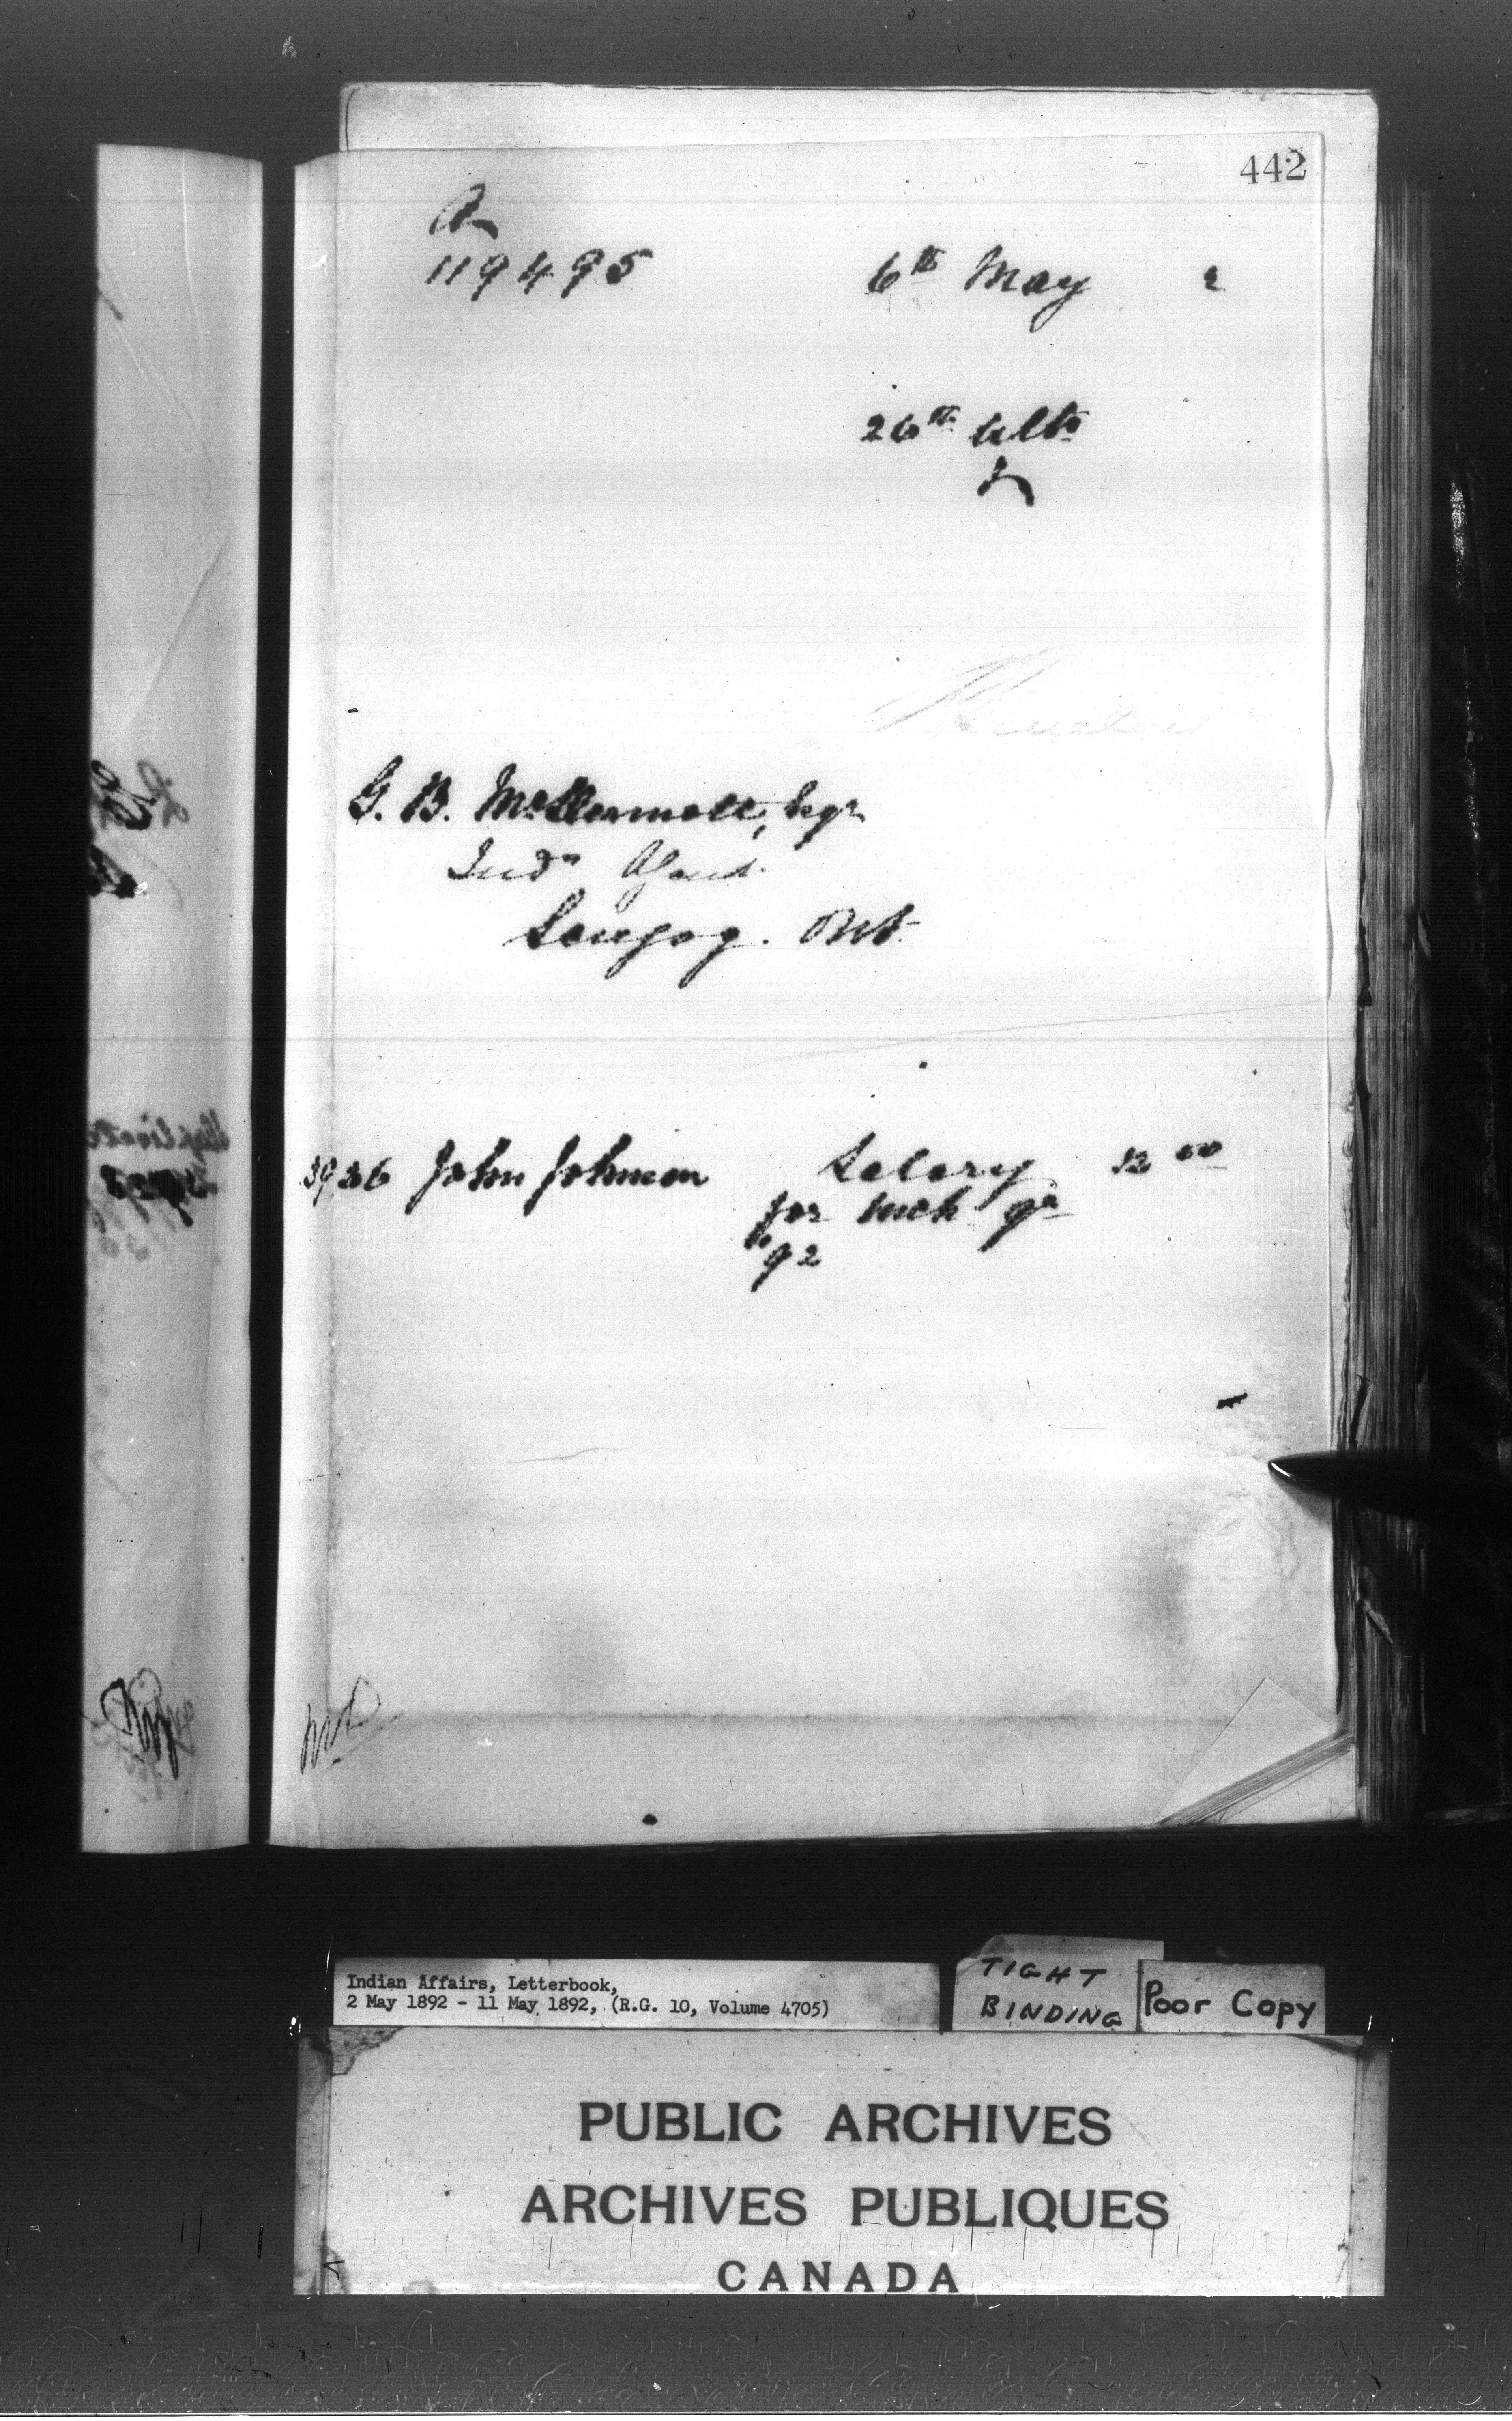 442
A
119495
6th May 2
26th ulto
G. B. McDermott, Esqr
Indn Agent.
Scugog. Ont.
3936 John Johnson Salary 12 00
for Mch qr
'92
Indian Affairs, Letterbook,
2 May 1892 - 11 May 1892, (R.G. 10, Volume 4705)
TIGHT
BINDING
Poor Copy
PUBLIC ARCHIVES
ARCHIVES PUBLIQUES
CANADA